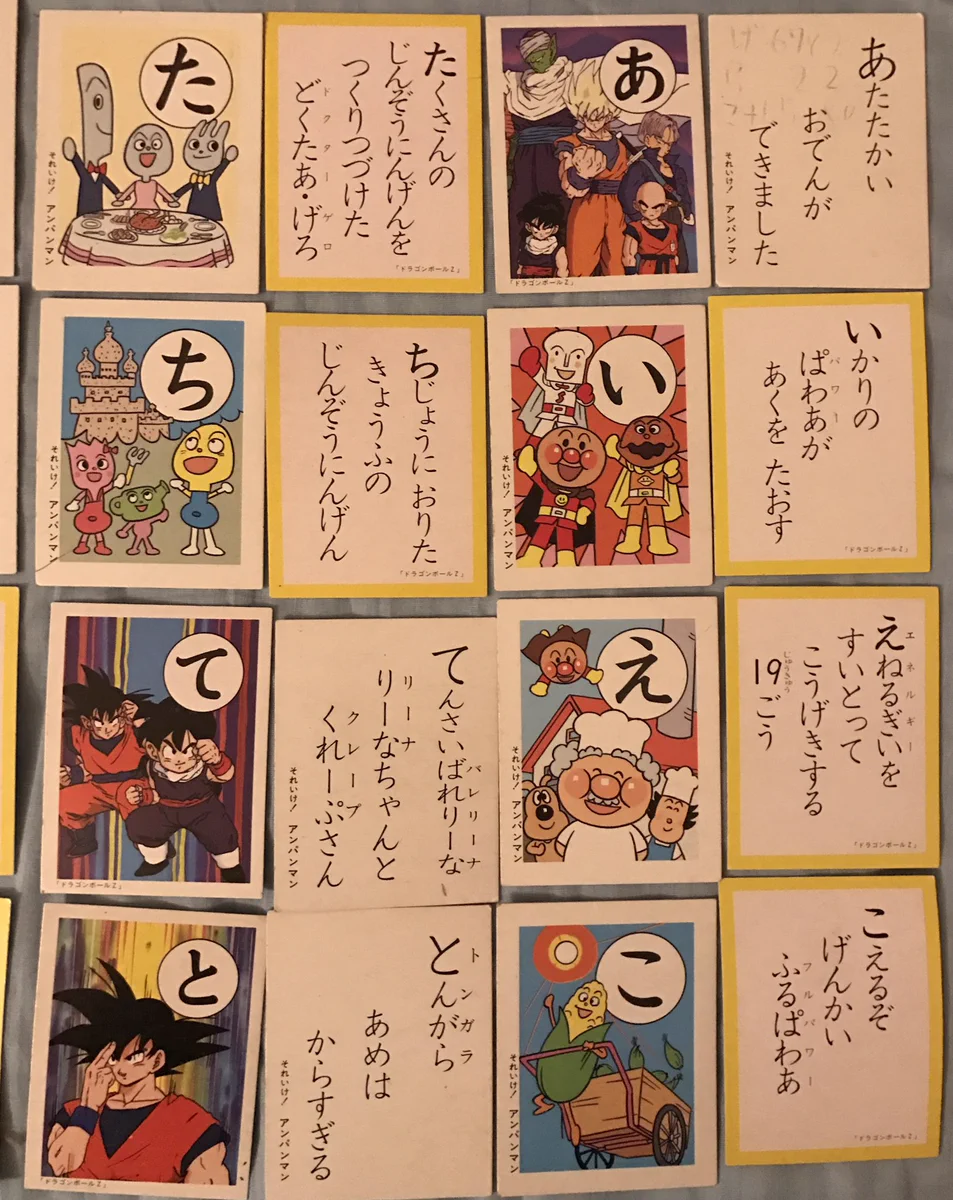 た
それいけ!アンパンマン
たくさんの
じんぞうにんげんを
つくりつづけた
どくたあ・げろ
ドクターゲロ
「ドラゴンボールZ」
あ
「ドラゴンボールZ」
あたたかい
おでんが
できました
それいけ!アンパンマン
ち
それいけ!アンパンマン
ちじょうに おりた
きょうふの
じんぞうにんげん
「ドラゴンボールZ」
い
それいけ!アンパンマン
いかりの
ぱわあが
パワー
あくを たおす
「ドラゴンボールZ」
て
「ドラゴンボールZ」
てんさいばれりーな
バレリーナ
りーなちゃんと
リーナ
くれーぷさん
クレープ
それいけ!アンパンマン
え
それいけ!アンパンマン
えねるぎいを
エネルギー
すいとって
こうげきする
19ごう
じゅうきゅう
「ドラゴンボールZ」
と
「ドラゴンボールZ」
とんがら
トンガラ
あめは
からすぎる
それいけ!アンパンマン
こ
それいけ!アンパンマン
こえるぞ
げんかい
ふるぱわあ
フルパワー
「ドラゴンボールZ」